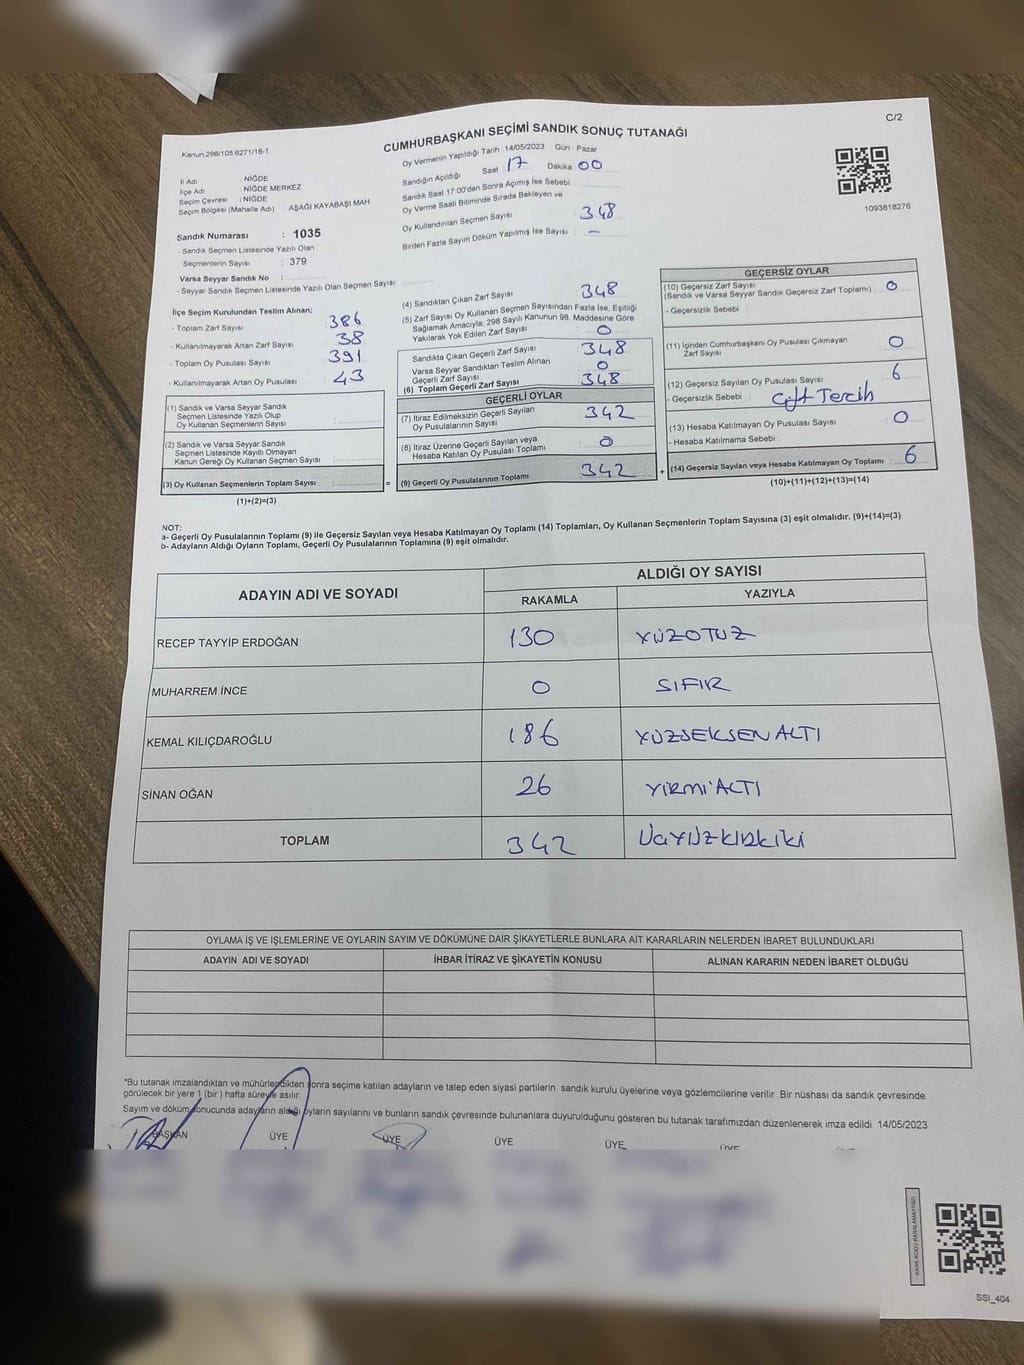 C/2
CUMHURBAŞKANI SEÇİMİ SANDIK SONUÇ TUTANAĞI
Kanun:298/105,6271/18-1
Oy Vermenin Yapıldığı Tarih : 14/05/2023 Gün : Pazar
Sandığın Açıldığı Saat : 17 Dakika : 00
Sandık Saat 17:00'den Sonra Açımış İse Sebebi :
Oy Verme Saati Bitiminde Sırada Bekleyen ve
Oy Kullandırılan Seçmen Sayısı : 348
Birden Fazla Sayım Döküm Yapılmış İse Sayısı : –
1093818276
İl Adı : NİĞDE
İlçe Adı : NİĞDE MERKEZ
Seçim Çevresi : NİĞDE
Seçim Bölgesi (Mahalle Adı) : AŞAĞI KAYABAŞI MAH
Sandık Numarası : 1035
- Sandık Seçmen Listesinde Yazılı Olan
Seçmenlerin Sayısı : 379
Varsa Seyyar Sandık No :
- Seyyar Sandık Seçmen Listesinde Yazılı Olan Seçmen Sayısı :
İlçe Seçim Kurulundan Teslim Alınan;
- Toplam Zarf Sayısı : 386
- Kullanılmayarak Artan Zarf Sayısı : 38
- Toplam Oy Pusulası Sayısı : 391
- Kullanılmayarak Artan Oy Pusulası : 43
(1) Sandık ve Varsa Seyyar Sandık
Seçmen Listesinde Yazılı Olup
Oy Kullanan Seçmenlerin Sayısı :
(2) Sandık ve Varsa Seyyar Sandık
Seçmen Listesinde Kayıtlı Olmayan
Kanun Gereği Oy Kullanan Seçmen Sayısı :
(3) Oy Kullanan Seçmenlerin Toplam Sayısı : =
(1)+(2)=(3)
(4) Sandıktan Çıkan Zarf Sayısı : 348
(5) Zarf Sayısı Oy Kullanan Seçmen Sayısından Fazla İse, Eşitliği
Sağlamak Amacıyla; 298 Sayılı Kanunun 98. Maddesine Göre
Yakılarak Yok Edilen Zarf Sayısı : 0
Sandıkta Çıkan Geçerli Zarf Sayısı : 348
Varsa Seyyar Sandıktan Teslim Alınan
Geçerli Zarf Sayısı : 0
(6) Toplam Geçerli Zarf Sayısı : 348
GEÇERLİ OYLAR
(7) İtiraz Edilmeksizin Geçerli Sayılan
Oy Pusulalarının Sayısı : 342
(8) İtiraz Üzerine Geçerli Sayılan veya
Hesaba Katılan Oy Pusulası Toplamı : 0
(9) Geçerli Oy Pusulalarının Toplamı : 342 +
GEÇERSİZ OYLAR
(10) Geçersiz Zarf Sayısı
(Sandık ve Varsa Seyyar Sandık Geçersiz Zarf Toplamı) : 0
- Geçersizlik Sebebi :
(11) İçinden Cumhurbaşkanı Oy Pusulası Çıkmayan
Zarf Sayısı : 0
(12) Geçersiz Sayılan Oy Pusulası Sayısı : 6
- Geçersizlik Sebebi : Çift Tercih
(13) Hesaba Katılmayan Oy Pusulası Sayısı : 0
- Hesaba Katılmama Sebebi :
(14) Geçersiz Sayılan veya Hesaba Katılmayan Oy Toplamı : 6
(10)+(11)+(12)+(13)=(14)
NOT:
a- Geçerli Oy Pusulalarının Toplamı (9) ile Geçersiz Sayılan veya Hesaba Katılmayan Oy Toplamı (14) Toplamları, Oy Kullanan Seçmenlerin Toplam Sayısına (3) eşit olmalıdır. (9)+(14)=(3)
b- Adayların Aldığı Oyların Toplamı, Geçerli Oy Pusulalarının Toplamına (9) eşit olmalıdır.
ADAYIN ADI VE SOYADI ALDIĞI OY SAYISI
RAKAMLA YAZIYLA
RECEP TAYYİP ERDOĞAN 130 YÜZOTUZ
MUHARREM İNCE 0 SIFIR
KEMAL KILIÇDAROĞLU 186 YÜZSEKSENALTI
SİNAN OĞAN 26 YİRMİALTI
TOPLAM 342 ÜÇYÜZKIRKİKİ
OYLAMA İŞ VE İŞLEMLERİNE VE OYLARIN SAYIM VE DÖKÜMÜNE DAİR ŞİKAYETLERLE BUNLARA AİT KARARLARIN NELERDEN İBARET BULUNDUKLARI
ADAYIN ADI VE SOYADI İHBAR İTİRAZ VE ŞİKAYETİN KONUSU ALINAN KARARIN NEDEN İBARET OLDUĞU
*Bu tutanak imzalandıktan ve mühürlendikten sonra seçime katılan adayların ve talep eden siyasi partilerin sandık kurulu üyelerine veya gözlemcilerine verilir .Bir nüshası da sandık çevresinde
görülecek bir yere 1 (bir ) hafta süreyle asılır.
Sayım ve döküm sonucunda adayların aldığı oyların sayılarını ve bunların sandık çevresinde bulunanlara duyurulduğunu gösteren bu tutanak tarafımızdan düzenlenerek imza edildi. 14/05/2023
BAŞKAN ÜYE ÜYE ÜYE ÜYE
KARE KODU KARALAMAYINIZ!
SSI_404